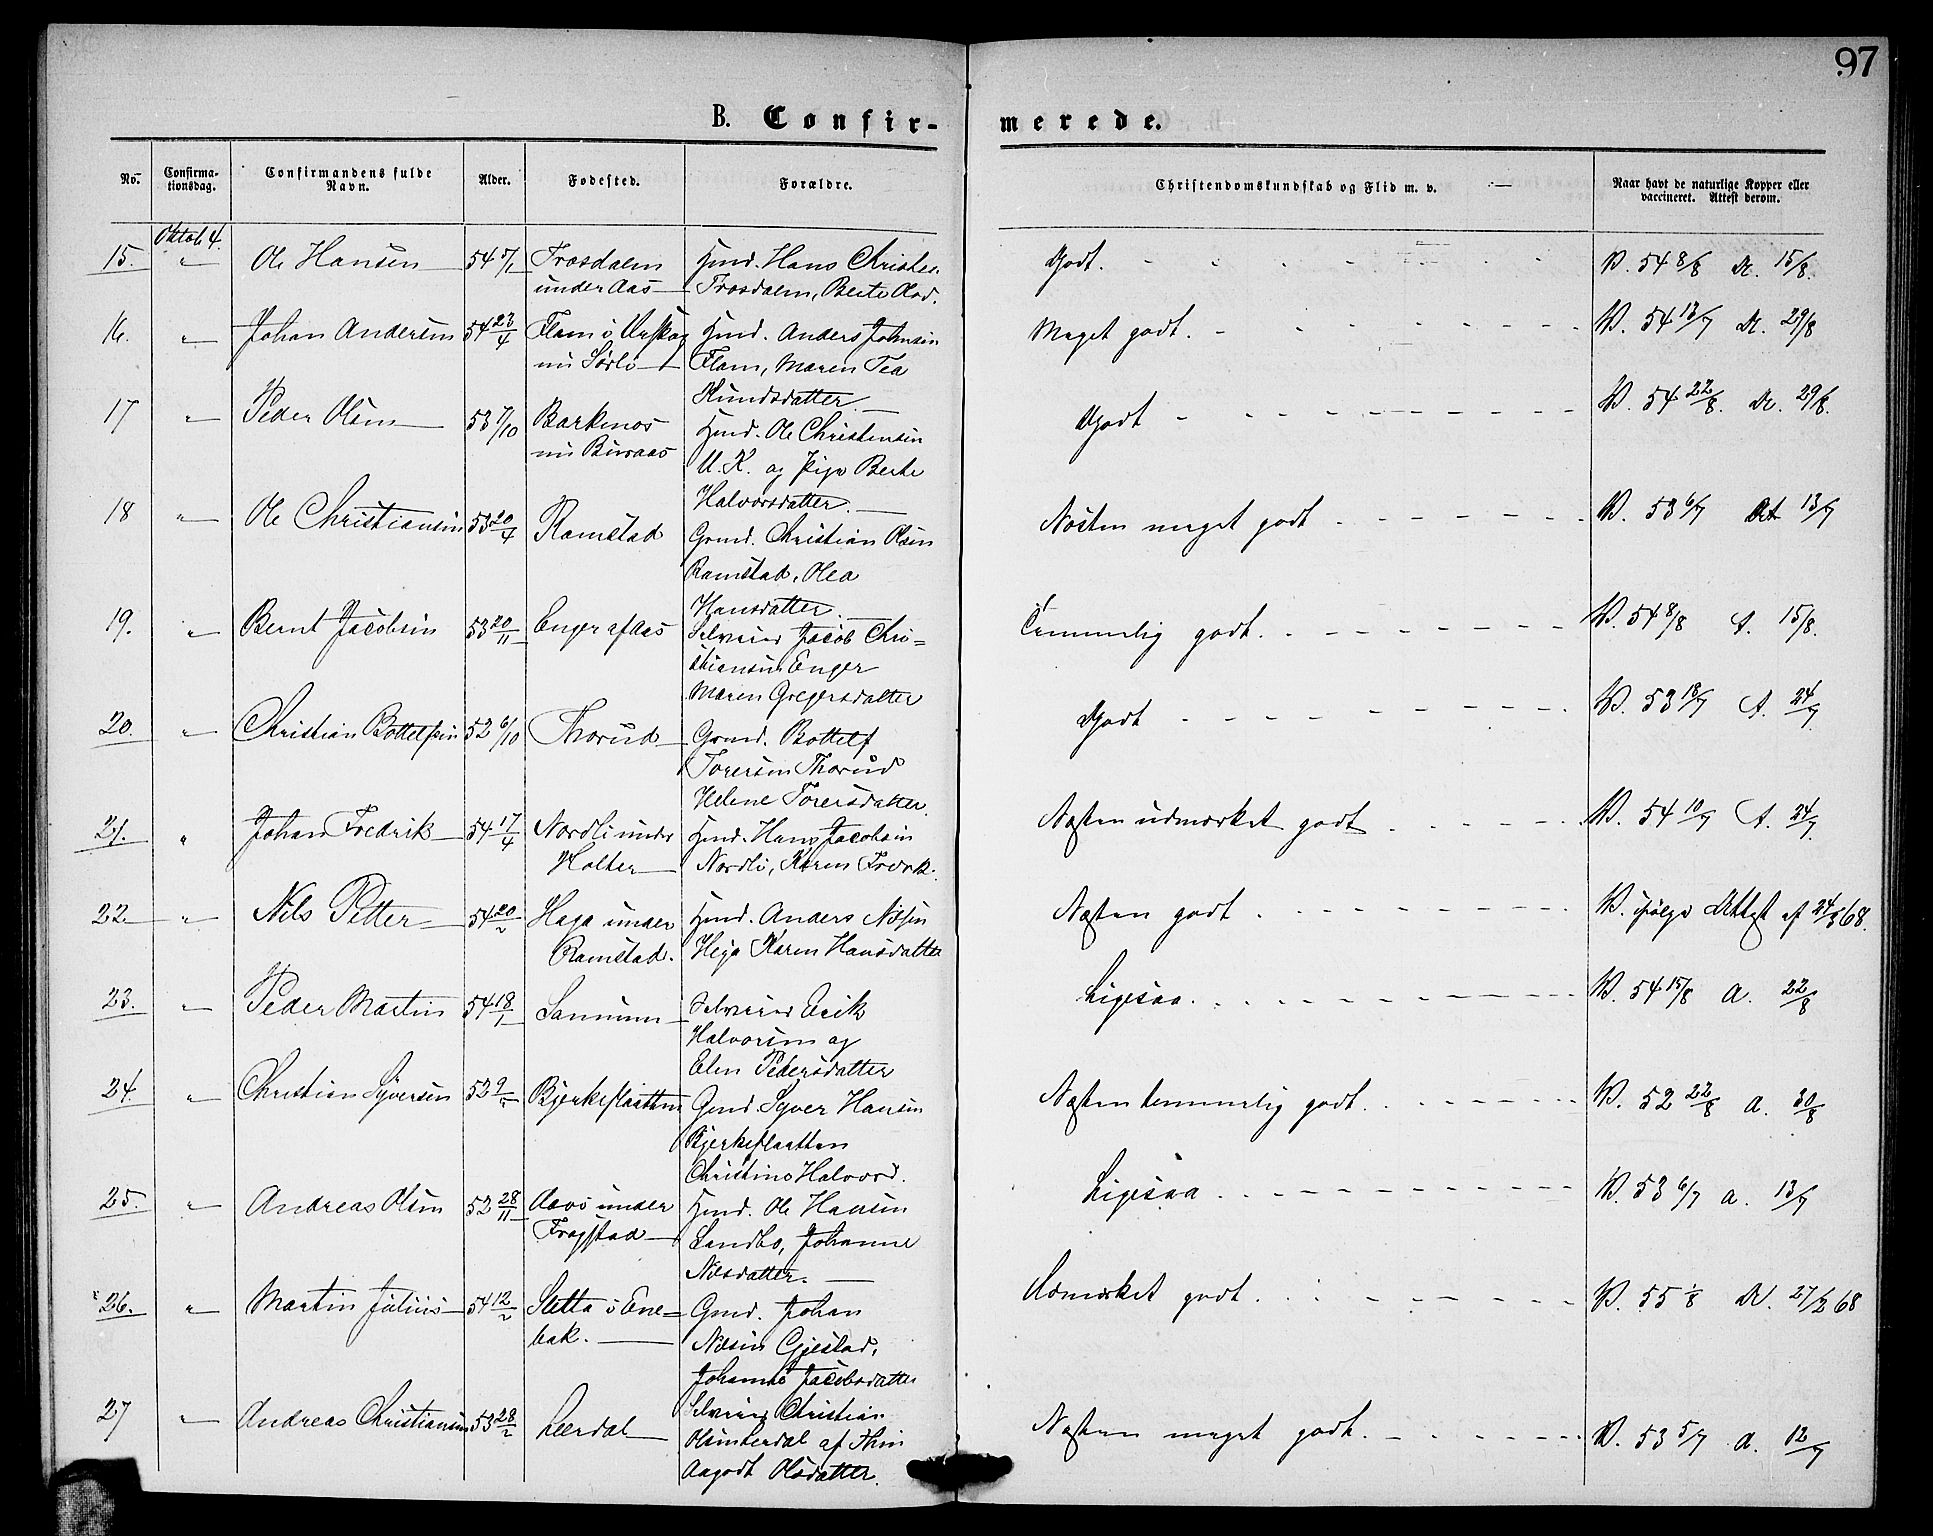 97
B. Confir-
merede.
No.
Confirma-
tionsdag.
Confirmandens fulde
Navn.
Alder.
Fødested.
Forældre.
Christendomskundskab og Flid m. v.
Naar havt de naturlige Kopper eller
vaccineret. Attest derom.
Oktob 4.
15. " Ole Hansen 54 5/1 Trosdalen Hmd. Hans Christen. Godt. V. 54 8/8 A. 15/8.
under Aas Trosdalen, Berte Olsd.
16. " Johan Andersen 54 23/4 Flam i Urskog Hmd. Anders Johnsen Meget godt. V. 54 13/7 A. 29/8
nu Sørli Flam, Maren Tea
Knudsdatter.
17 " Peder Olsen 53 7/10 Barkenos Hmd. Ole Christensen Godt V. 54 22/8. A. 29/8.
nu Buraas U. K. og Pige Berte
Halvorsdatter.
18 " Ole Christiansen 53 20/4 Ramstad Gmd. Christian Olsen Næsten meget godt V. 53 6/7 Att 13/7
Ramstad, Olea
Hansdatter.
19. " Bernt Jacobsen 53 20/11 Enger af Aas Selveier Jacob Chri= Temmelig godt. V. 54 8/8 A. 15/8.
stiansen Enger
Maren Gregersdatter
20. " Christian Bottelfsen 52 6/10 Thorud Gmd. Bottelf Godt V. 53 18/7 A. 24/7.
Torersen Thorud
Helene Torersdatter.
21. " Johan Fredrik 54 17/4 Nordli under Hmd. Hans Jacobsen Næsten udmærket godt V. 54 10/7 A. 24/7.
Holter Nordli, Karen Fredrik.
22. " Nils Petter 54 20/2 Haga under Hmd. Anders Nilsen Næsten godt V. ifølge Attest af 24/8 68.
Ramstad. Heja Karen Hansdatter
23. " Peder Martin 54 18/1 Sannum Selveier Erik Ligesaa V. 54 15/8 A. 22/8
Halvorsen og
Elen Pedersdatter
24. " Christian Syversen 52 9/2 Bjerkeflaatten Gmd. Syver Hansen Næsten temmelig godt. V. 52 22/8 A. 30/8
Bjerkeflaatten
Christine Halvord.
25. " Andreas Olsen 52 28/11 Aavs under Hmd. Ole Hansen Ligesaa V. 53 6/7 A. 13/7
Frogstad Sandbo, Johanne
Nilsdatter.
26. " Martin Julius 54 12/2 Sletta i Ene= Gmd. Johan Udmærket godt. V. 55 1/8 A. 27/2 68
bak. Nilsen Gjestad,
Johanne Jacobsdatter
27 " Andreas Christiansen 53 28/2 Leerdal Selveier Christian Næsten meget godt. V. 53 5/7 A. 12/7
Olsen Lerdal af
Aagodt Olsdatter.